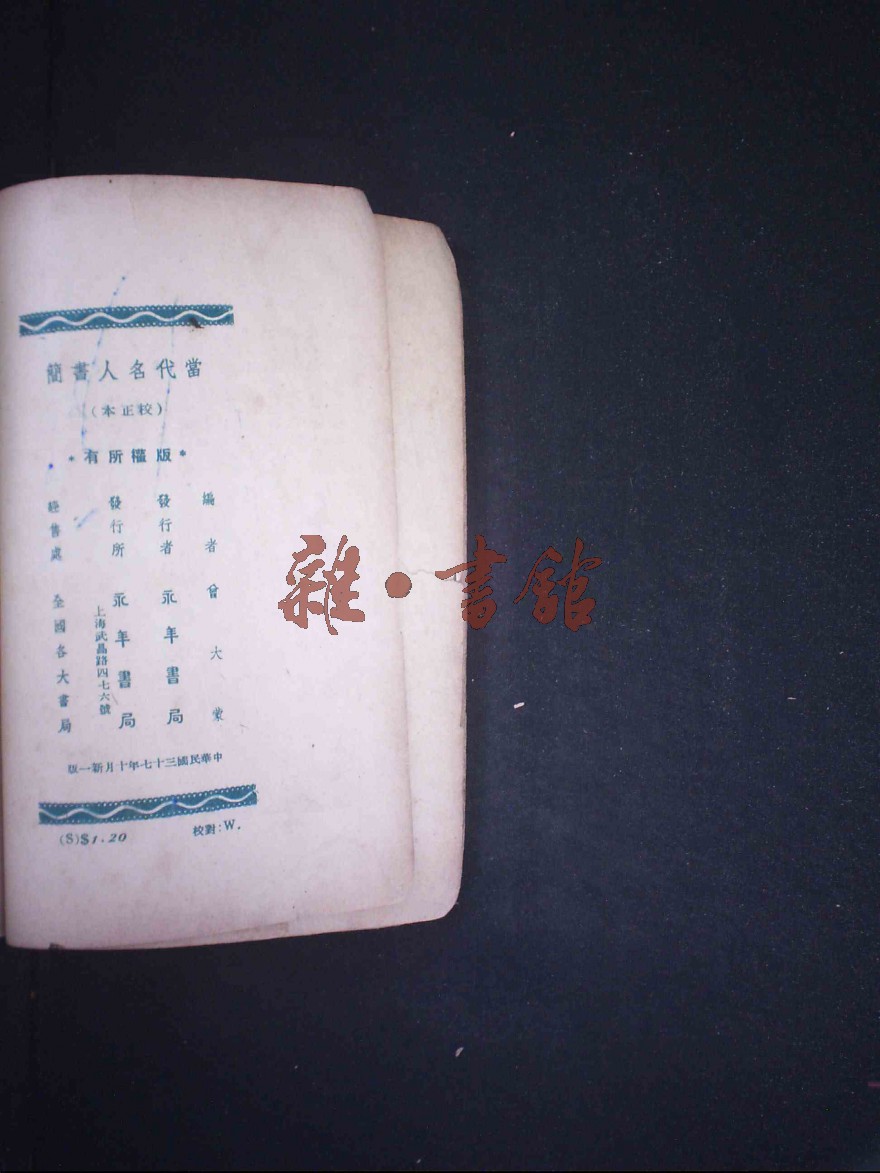 當代名人書簡
（校正本）
*版權所有*
編者 曾大蒙
發行者 永年書局
發行所 永年書局
上海武昌路四七六號
經售處 全國各大書局
中華民國三十七年十月新一版
校對:W.
(S)$1.20
雜·書館